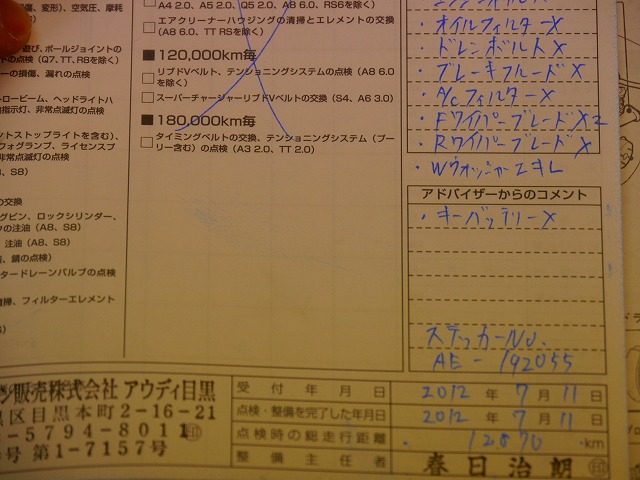 傷、変形)、空気圧、摩耗
遊び、ボールジョイントの
の点検(Q7、TT、R8を除く)
ーの損傷、漏れの点検
トロービーム、ヘッドライトハ
指示灯、非常点滅灯の点検
ントストップライトを含む)、
フォグランプ、ライセンスプ
非常点滅灯の点検
、S8)
の交換
グピン、ロックシリンダー、
クの注油(A8、S8)
注油(A8、S8)
、錆の点検)
タードレーンバルブの点検
掃、フィルターエレメント
A4 2.0、A5 2.0、Q5 2.0、A8 6.0、RS6を除く)
□エアクリーナーハウジングの清掃とエレメントの交換
(A8 6.0、TT RSを除く)
■120,000km毎
□リブドVベルト、テンショニングシステムの点検(A8 6.0
を除く)
□スーパーチャージャーリブドVベルトの交換(S4、A6 3.0)
■180,000km毎
□タイミングベルトの交換、テンショニングシステム(プー
リー含む)の点検(A3 2.0、TT 2.0)
・オイルフィルターX
・ドレンボルトX
・ブレーキフルードX
・A/cフィルターX
・FワイパーブレードX2
・RワイパーブレードX
・Wウォッシャー2本L
アドバイザーからのコメント
・キーバッテリーX
ステッカーNo.
AE-192055
ン販売株式会社 アウディ目黒
区目黒本町2-16-21
-5794-8011
号 第1-7157号
受付年月日 2012年7月11日
点検・整備を完了した年月日 2012年7月11日
点検時の総走行距離 12870 km
整備主任者 春日治朗 印